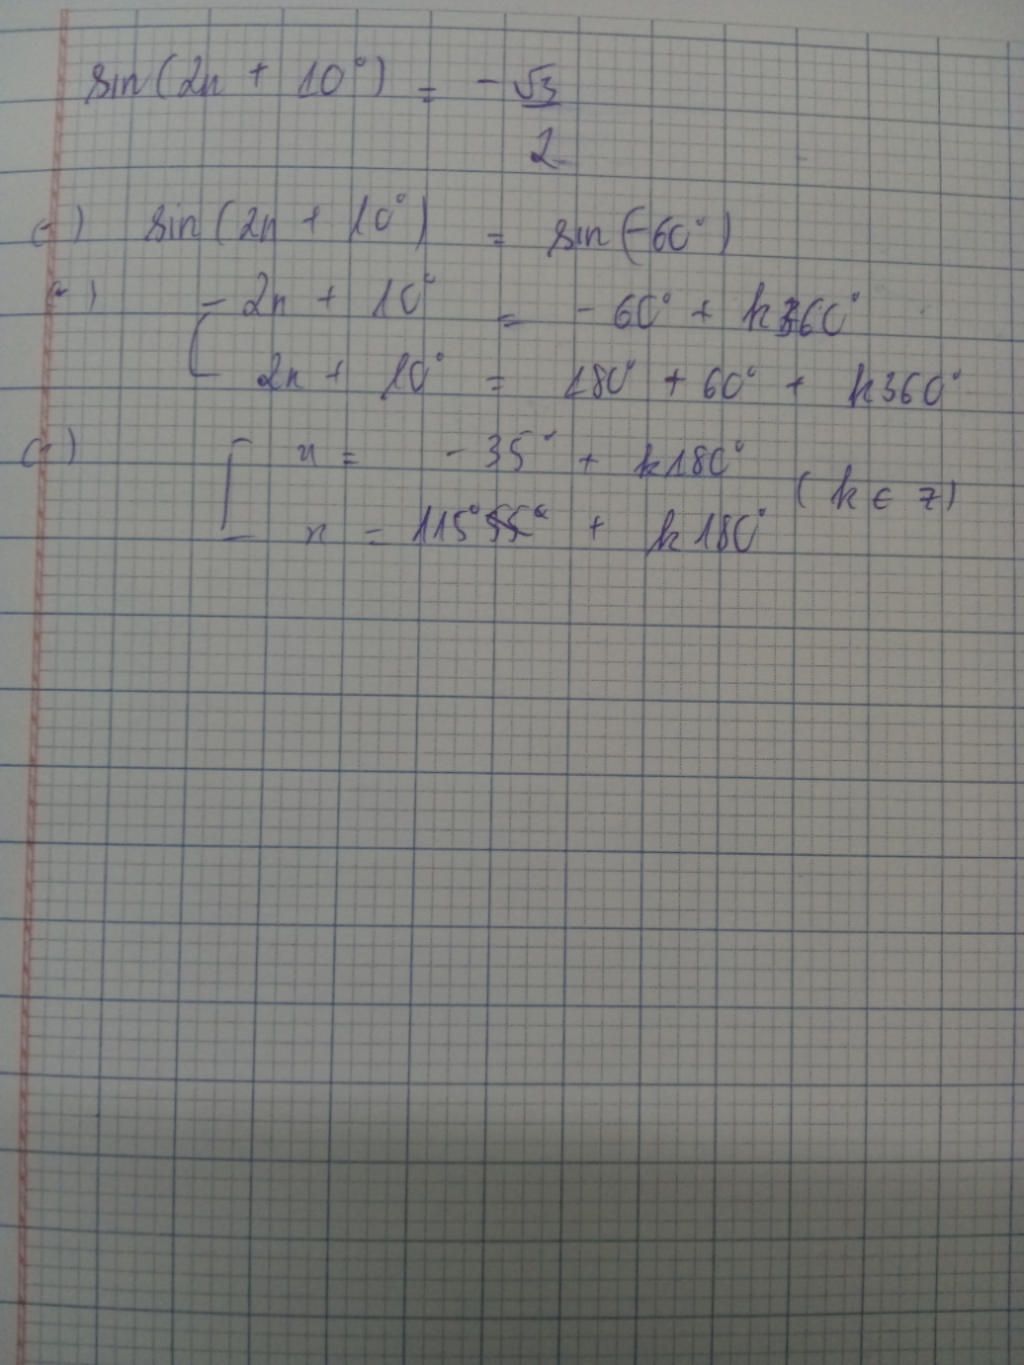 sin(2x + 10°) = -√3/2
(=) sin(2x + 10°) = sin(-60°)
(=) [ 2x + 10° = -60° + k360°
2x + 10° = 180° + 60° + k360°
(=) [ x = -35° + k180°
x = 115° + k180° (k ∈ Z)